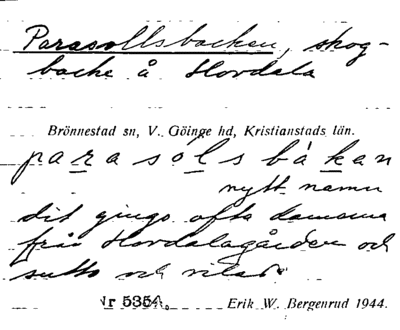 Parasollsbacken, skog-
backe å Hovdala
Brönnestad sn, V. Göinge hd, Kristianstads län.
parasólsbákan
nytt namn
dit gingo ofta damerna
från Hovdalagården och
sutto och vilade
Nr 5354. Erik W. Bergenrud 1944.